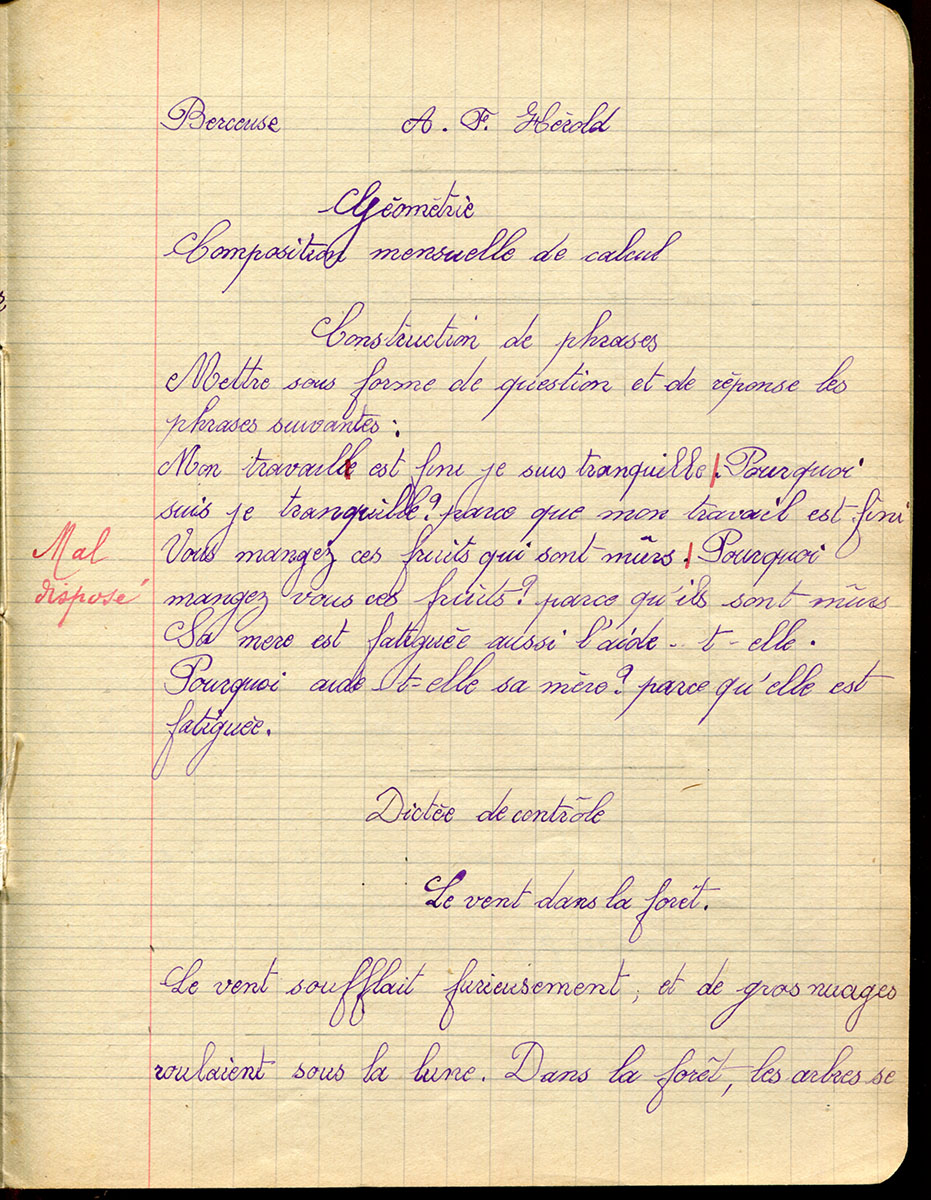 Berceuse A. F. Hérold
Géométrie
Composition mensuelle de calcul
Construction de phrases
Mettre sous forme de question et de réponse les
phrases suivantes :
Mon travaille est fini je suis tranquille. Pourquoi
suis je tranquille? parce que mon travail est fini
Vous mangez ces fruits qui sont mûrs. Pourquoi
Mal
disposé
mangez vous ces fruits? parce qu'ils sont mûrs
Sa mere est fatiguée aussi l'aide - t - elle.
Pourquoi aide -t-elle sa mère? parce qu'elle est
fatiguée.
Dictée de contrôle
Le vent dans la forêt.
Le vent soufflait furieusement, et de gros nuages
roulaient sous la lune. Dans la forêt, les arbres se